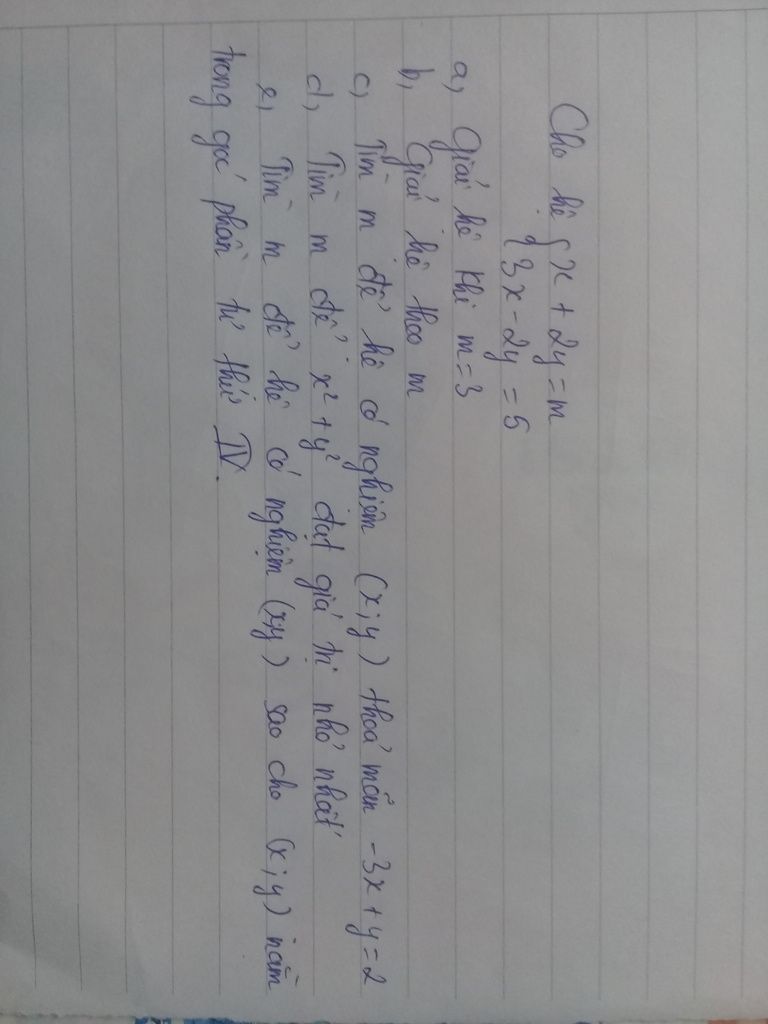 Cho hệ { x + 2y = m
3x - 2y = 5
a, Giải hệ khi m = 3
b, Giải hệ theo m
c, Tìm m để hệ có nghiệm (x; y) thoả mãn -3x + y = 2
d, Tìm m để x² + y² đạt giá trị nhỏ nhất
e, Tìm m để hệ có nghiệm (x;y) sao cho (x; y) nằm
trong góc phần tư thứ IV.